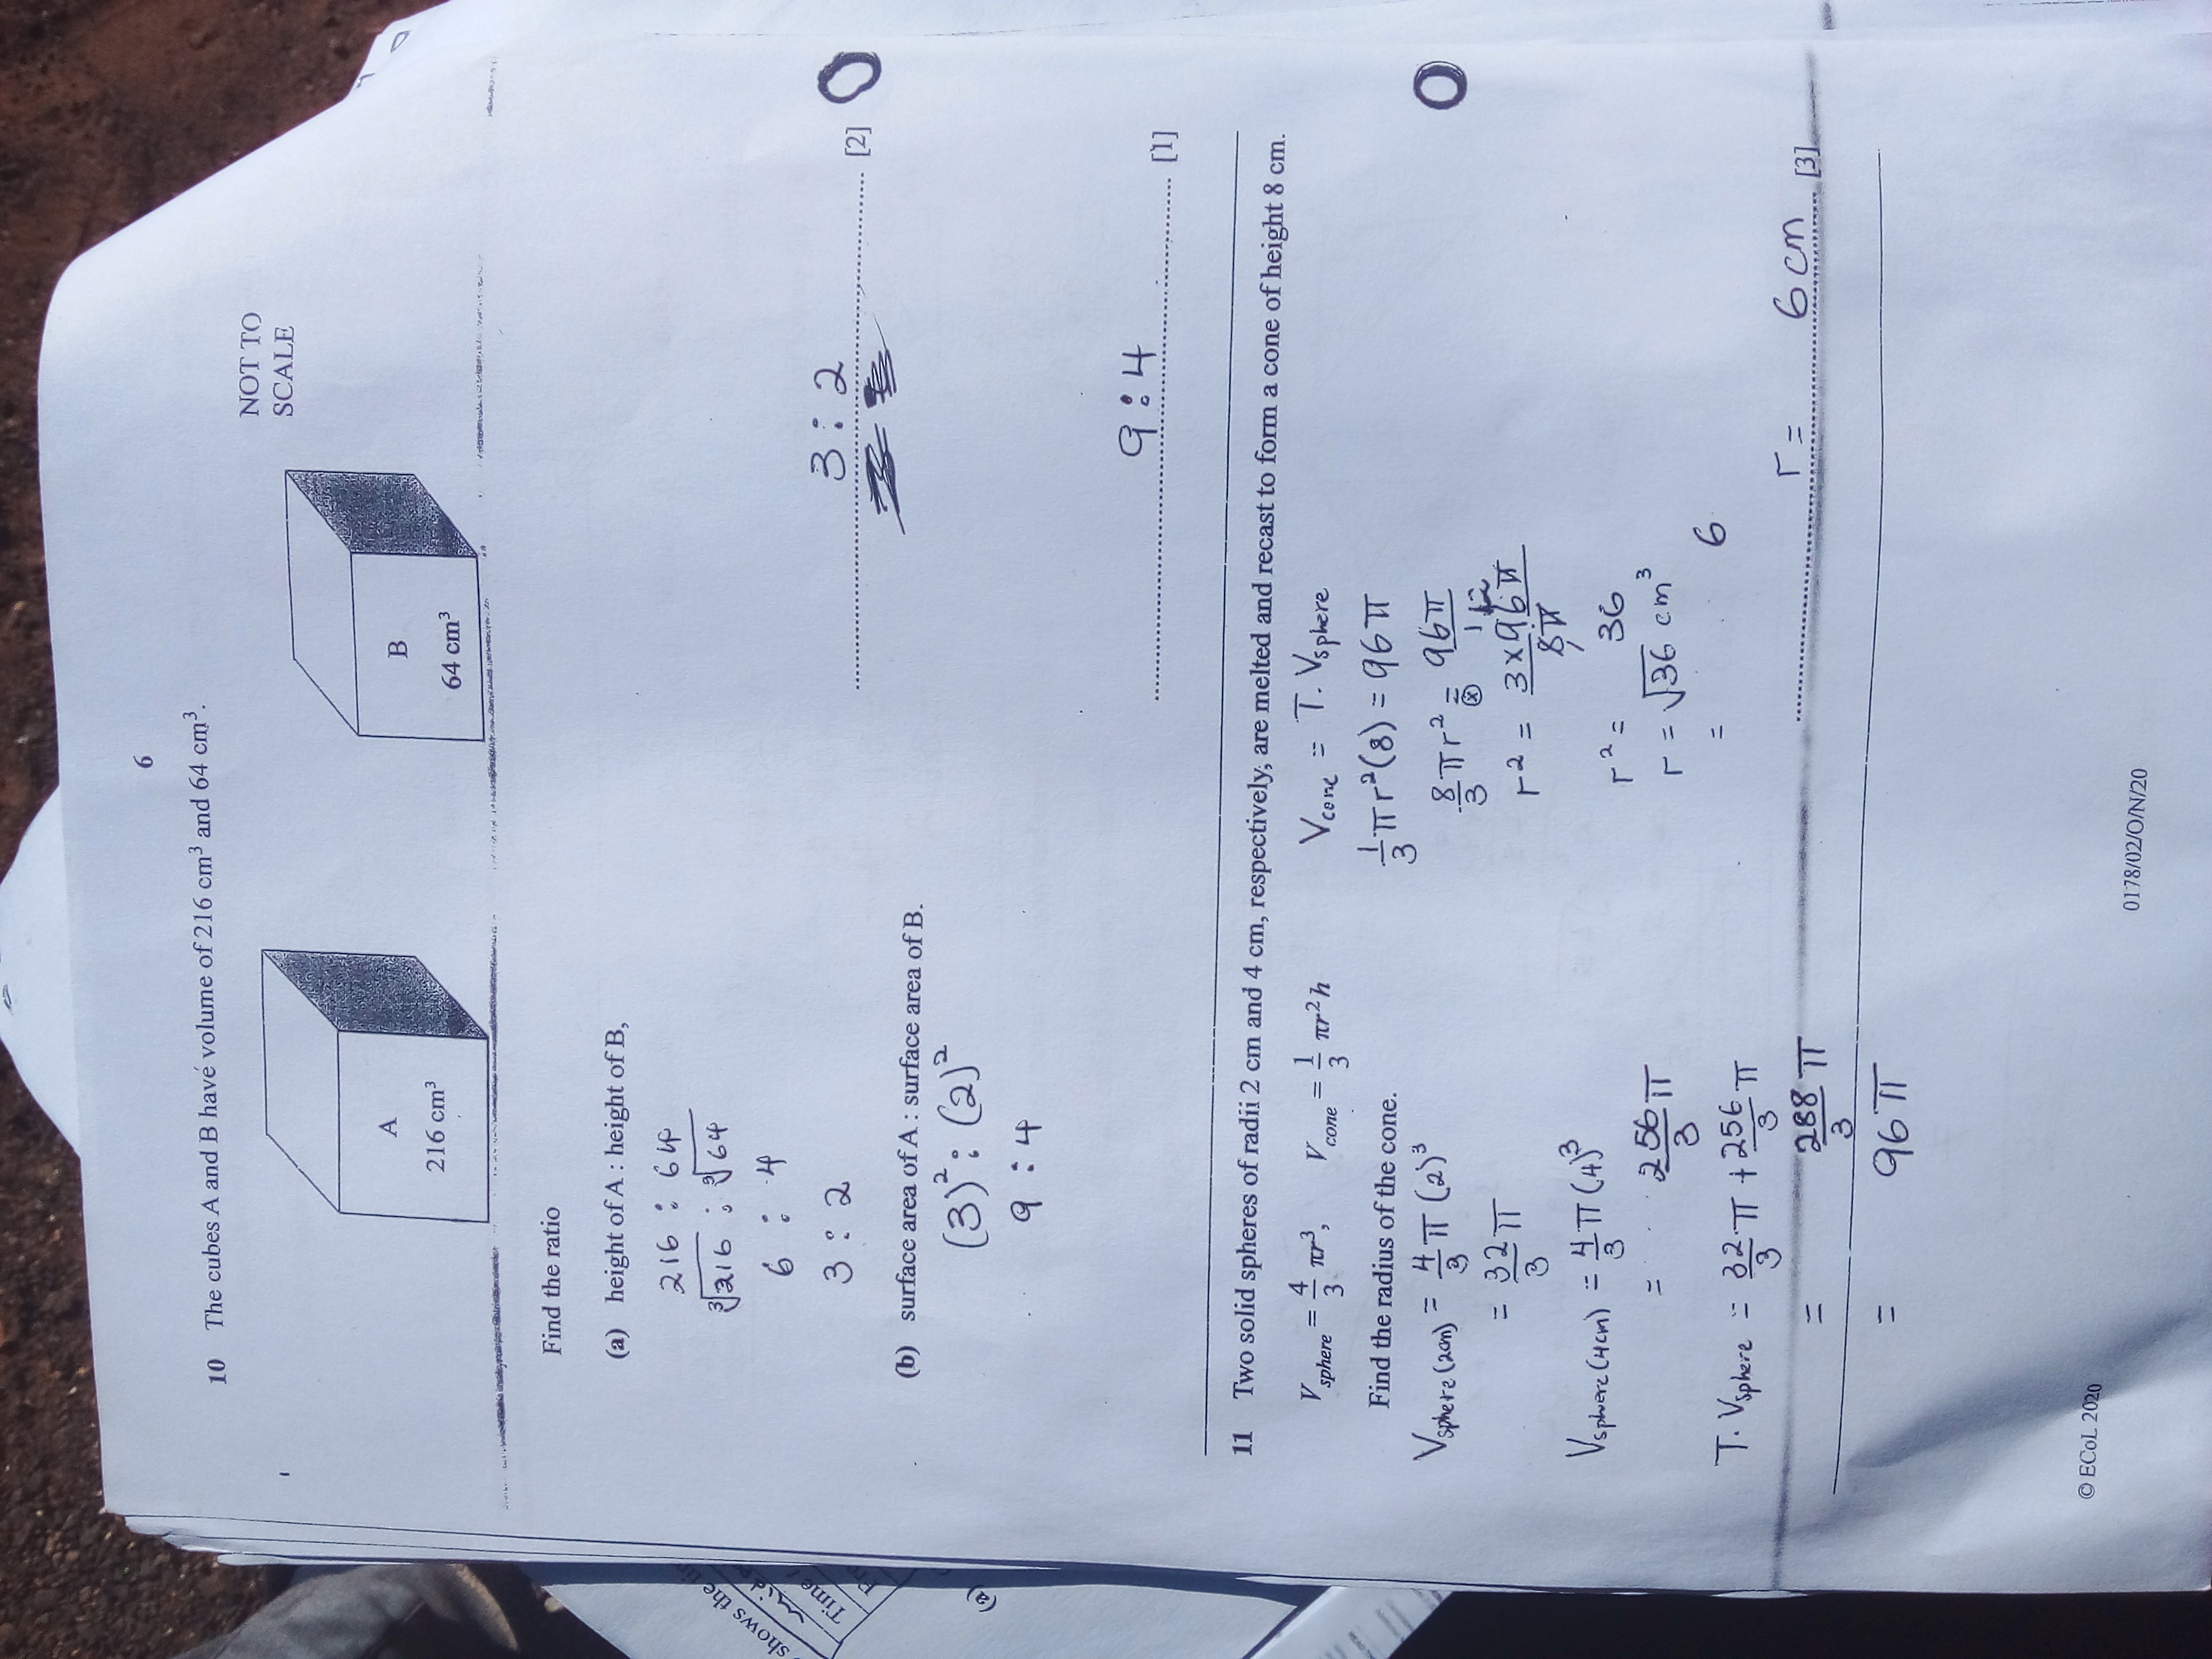 6
10 The cubes A and B have volume of 216 cm³ and 64 cm³.
NOT TO
SCALE
A
216 cm³
B
64 cm³
Find the ratio
(a) height of A : height of B,
216 : 64
∛216 : ∛64
6 : 4
3 : 2
3 : 2
[2]
(b) surface area of A : surface area of B.
(3)² : (2)²
9 : 4
9 : 4
[1]
11 Two solid spheres of radii 2 cm and 4 cm, respectively, are melted and recast to form a cone of height 8 cm.
V sphere = 4/3 πr³, V cone = 1/3 πr²h
Find the radius of the cone.
Vsphere (2cm) = 4/3 π (2)³
= 32/3 π
Vsphere (4cm) = 4/3 π (4)³
= 256/3 π
T. Vsphere = 32/3 π + 256/3 π
= 288/3 π
= 96 π
Vcone = T. Vsphere
1/3 π r² (8) = 96 π
8/3 π r² = 96π/1
r² = 3 × 96π / 8π
12
r² = 36
r = √36 cm³
= 6
r = 6 cm
[3]
© ECoL 2020
0178/02/O/N/20
shows the
Time
(a)